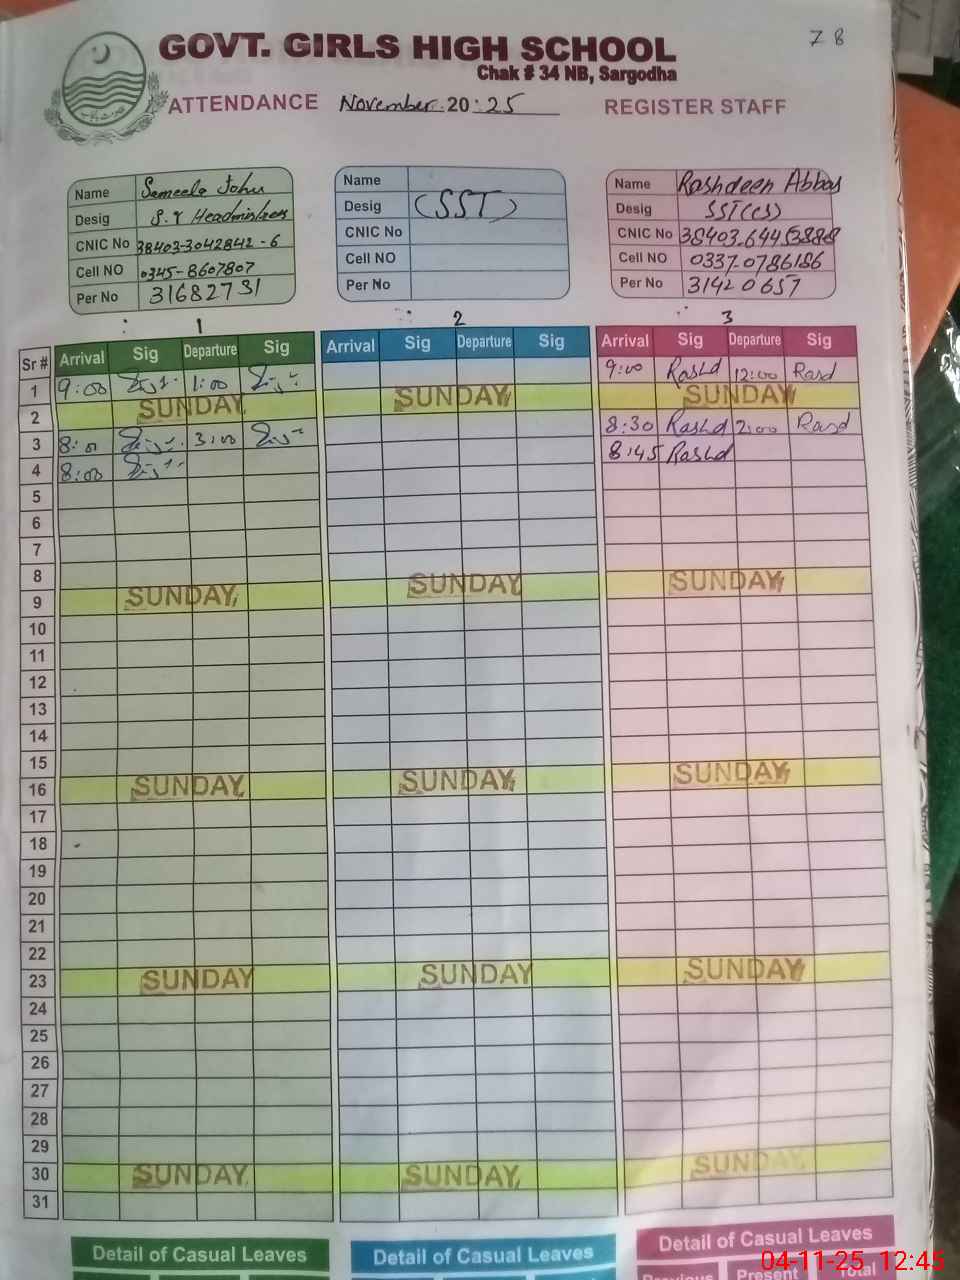 78
GOVT. GIRLS HIGH SCHOOL
Chak # 34 NB, Sargodha
ATTENDANCE November 20:25 REGISTER STAFF
Name Sameela John
Desig S.Y Headmistress
CNIC No 38403-3042842-6
Cell NO 0345-8607807
Per No 31682731
Name
Desig (SST)
CNIC No
Cell NO
Per No
Name Rashdeen Abbas
Desig SST(CS)
CNIC No 38403-6445388-8
Cell NO 0337-0786186
Per No 31420657
1 2 3
Sr # Arrival Sig Departure Sig Arrival Sig Departure Sig Arrival Sig Departure Sig
1 9:00 1:00 9:00 Rashd 12:00 Rasd
2 SUNDAY SUNDAY SUNDAY
3 8:00 3:00 8:30 Rashd 2:00 Rasd
4 8:00 8:45 Rashd
5
6
7
8
9 SUNDAY SUNDAY SUNDAY
10
11
12
13
14
15
16 SUNDAY SUNDAY SUNDAY
17
18
19
20
21
22
23 SUNDAY SUNDAY SUNDAY
24
25
26
27
28
29
30 SUNDAY SUNDAY SUNDAY
31
Detail of Casual Leaves Detail of Casual Leaves Detail of Casual Leaves
Previous Present Total
04-11-25 12:45